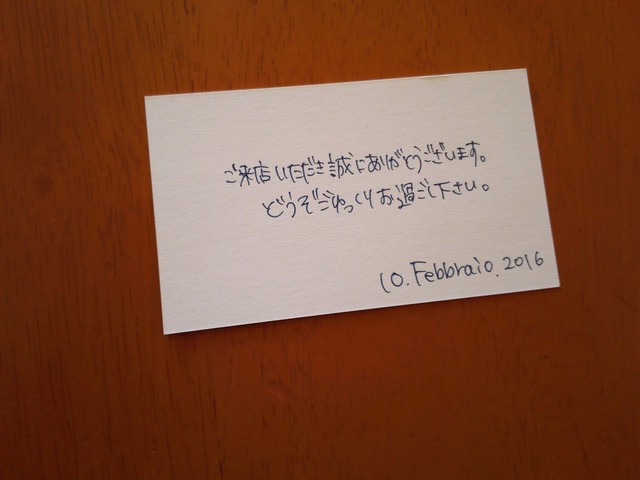 ご来店いただき誠にありがとうございます。
どうぞごゆっくりお過ごし下さい。
10.Febbraio.2016